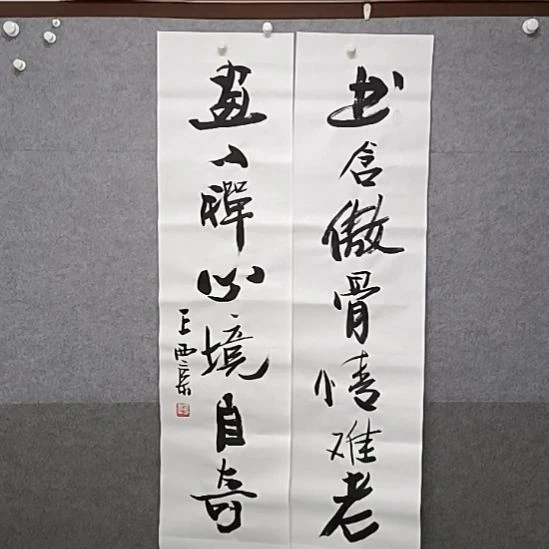 书含傲骨情难老
画入禅心境自奇
王西京